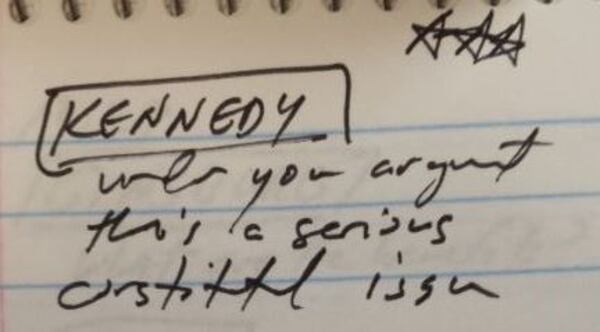 KENNEDY
under your argument
this is a serious
constitutional issue